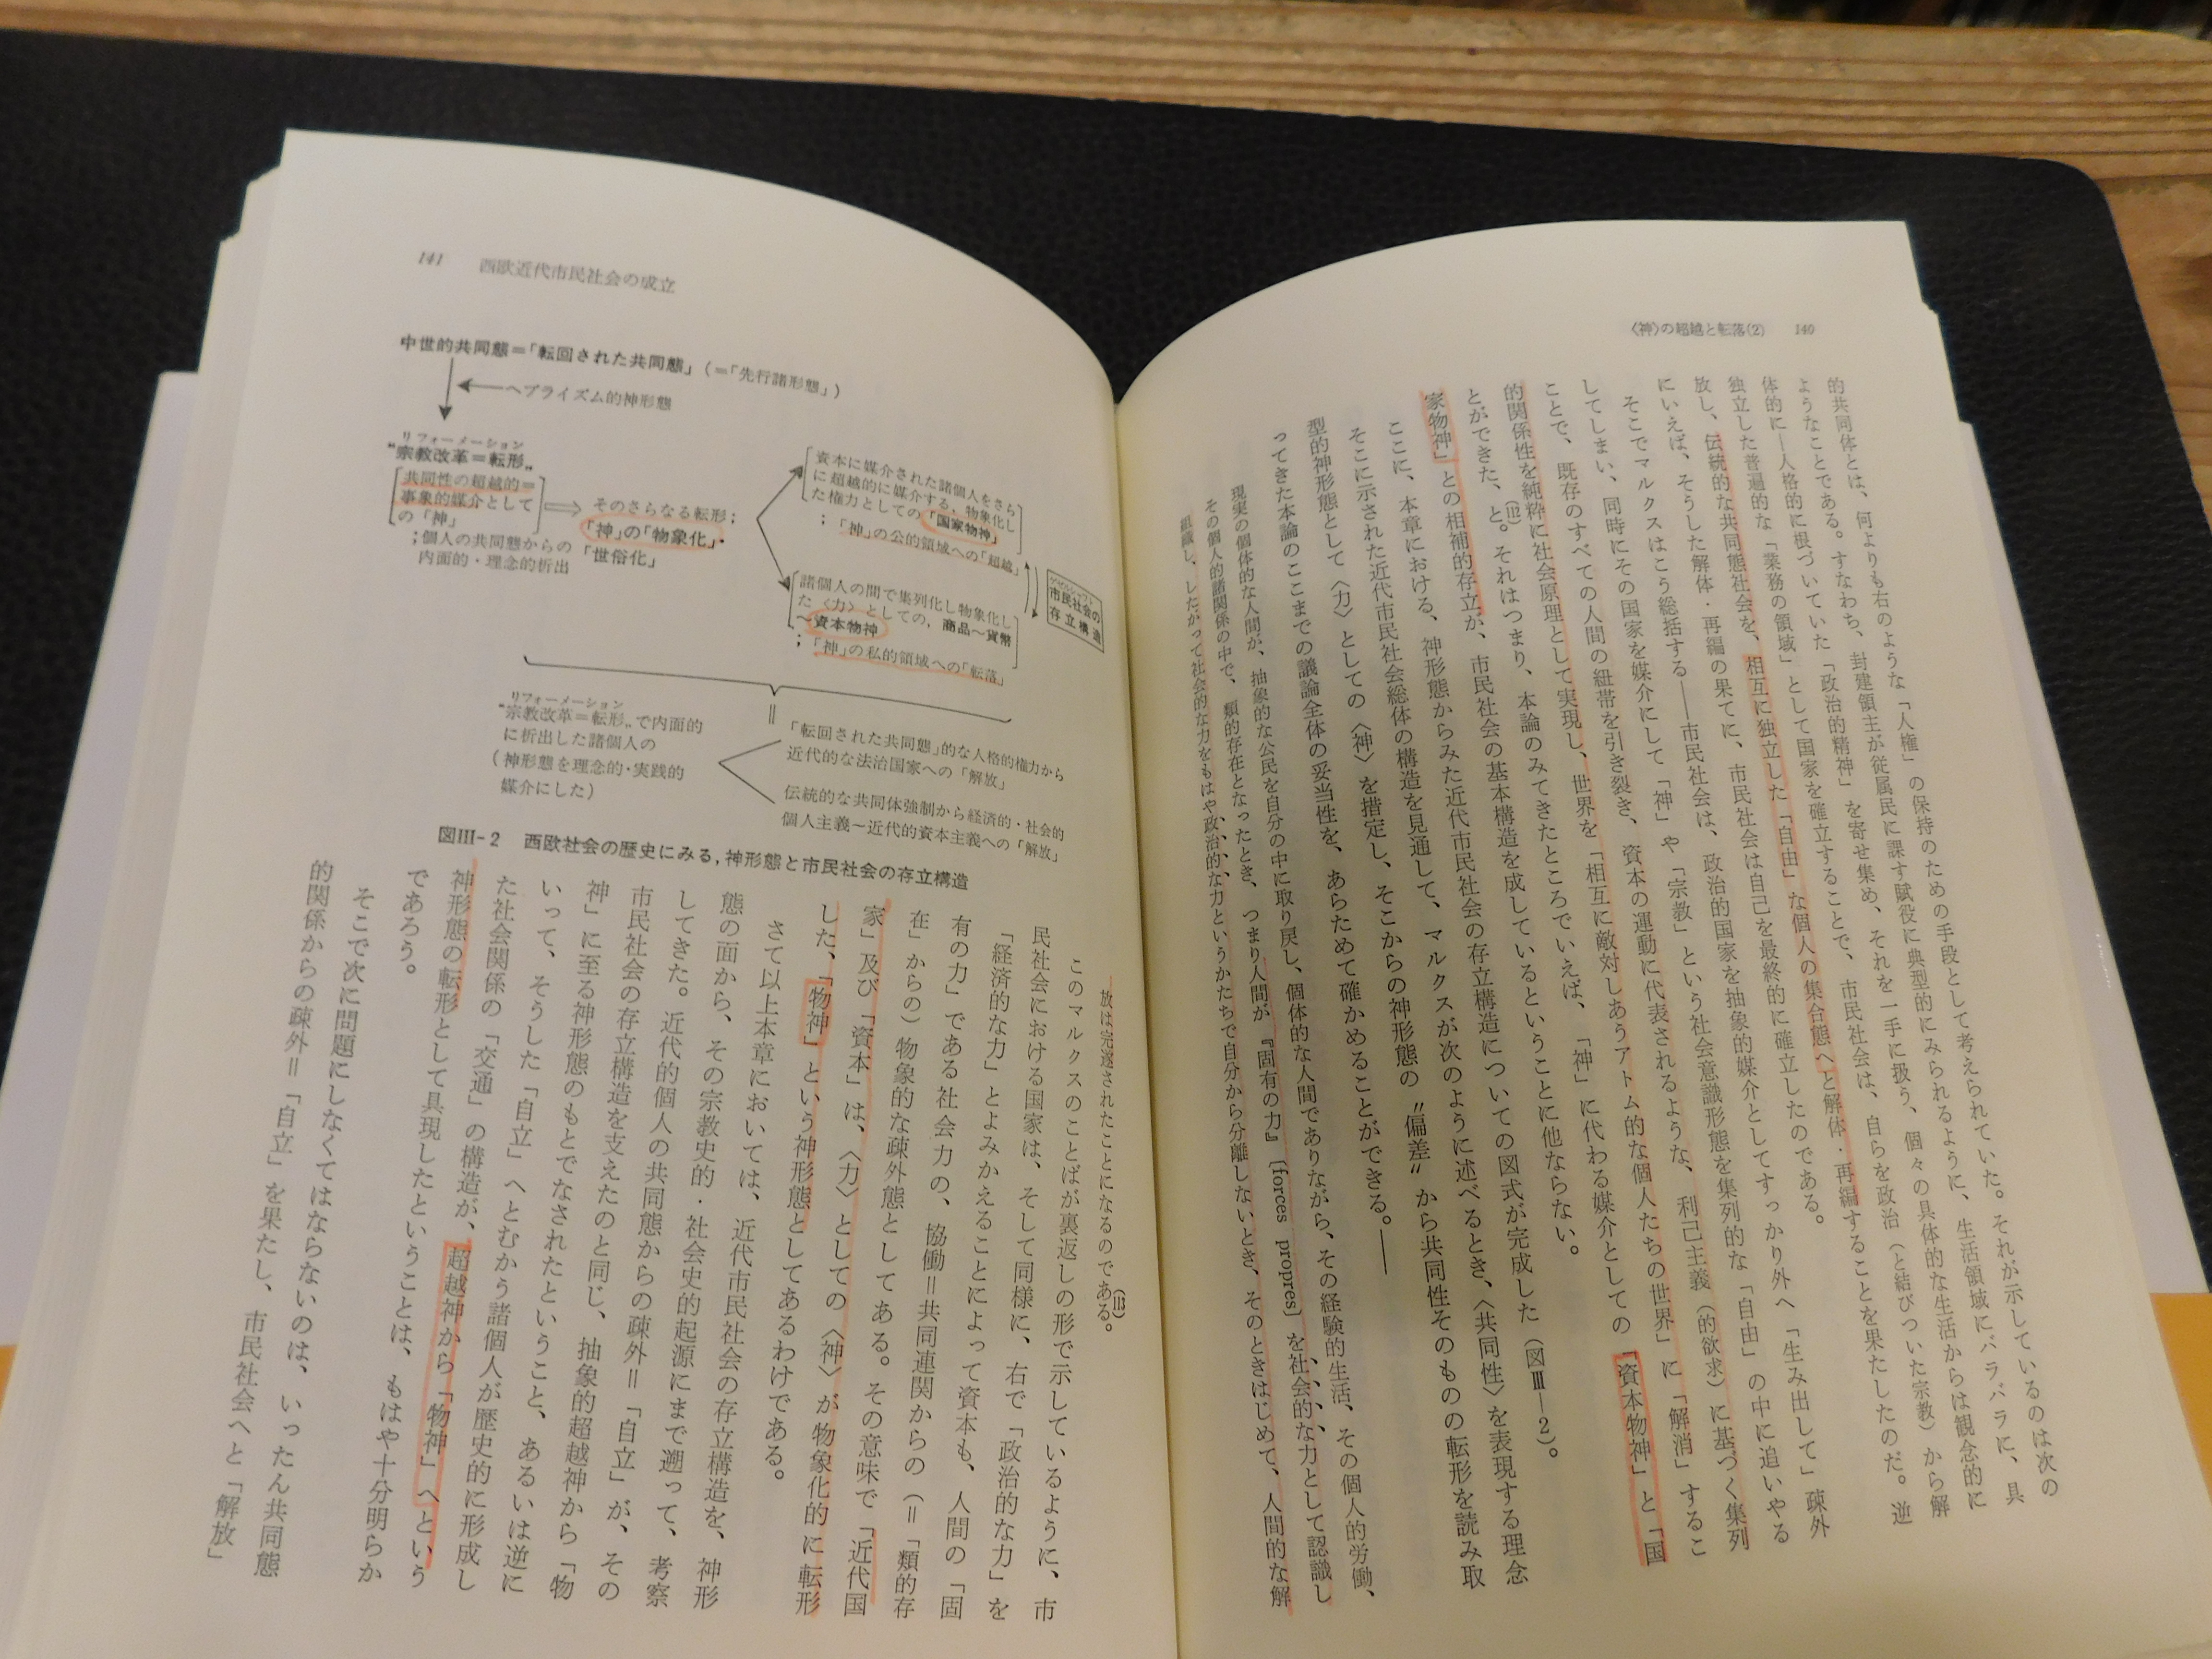 〈神〉の超越と転落(2) 140
的共同体とは、何よりも右のような「人権」の保持のための手段として考えられていた。それが示しているのは次の
ようなことである。すなわち、封建領主が従属民に課す賦役に典型的にみられるように、生活領域にバラバラに、具
体的に―人格的に根づいていた「政治的精神」を寄せ集め、それを一手に扱う、個々の具体的な生活からは観念的に
独立した普遍的な「業務の領域」として国家を確立することで、市民社会は、自らを政治（と結びついた宗教）から解
放し、伝統的な共同態社会を、相互に独立した「自由」な個人の集合態へと解体・再編することを果たしたのだ。逆
にいえば、そうした解体・再編の果てに、市民社会は自己を最終的に確立したのである。
そこでマルクスはこう総括する――市民社会は、政治的国家を抽象的媒介としてすっかり外へ「生み出して」疎外
してしまい、同時にその国家を媒介にして「神」や「宗教」という社会意識形態を集列的な「自由」の中に追いやる
ことで、既存のすべての人間の紐帯を引き裂き、資本の運動に代表されるような、利己主義（的欲求）に基づく集列
的関係性を純粋に社会原理として実現し、世界を「相互に敵対しあうアトム的な個人たちの世界」に「解消」するこ
とができた、と。(112)それはつまり、本論のみてきたところでいえば、「神」に代わる媒介としての「資本物神」と「国
家物神」との相補的存立が、市民社会の基本構造を成しているということに他ならない。
ここに、本章における、神形態からみた近代市民社会の存立構造についての図式が完成した（図Ⅲ―2）。
そこに示された近代市民社会総体の構造を見通して、マルクスが次のように述べるとき、〈共同性〉を表現する理念
型的神形態として〈力〉としての〈神〉を措定し、そこからの神形態の〝偏差〟から共同性そのものの転形を読み取
ってきた本論のここまでの議論全体の妥当性を、あらためて確かめることができる。――
現実の個体的な人間が、抽象的な公民を自分の中に取り戻し、個体的な人間でありながら、その経験的生活、その個人的労働、
その個人的諸関係の中で、類的存在となったとき、つまり人間が『固有の力』〔forces propres〕を社会的な力として認識し
組織し、したがって社会的な力をもはや政治的な力というかたちで自分から分離しないとき、そのときはじめて、人間的な解
141 西欧近代市民社会の成立
中世的共同態＝「転回された共同態」（＝「先行諸形態」）
ヘブライズム的神形態
リフォーメーション
“宗教改革＝転形„
共同性の超越的＝
事象的媒介として
の「神」
；個人の共同態からの
内面的・理念的析出
そのさらなる転形；
「神」の「物象化」・
「世俗化」
資本に媒介された諸個人をさら
に超越的に媒介する、物象化し
た権力としての「国家物神」
；「神」の公的領域への「超越」
諸個人の間で集列化し物象化し
た〈力〉としての，商品～貨幣
～資本物神
；「神」の私的領域への「転落」
市民社会の
存立構造
リフォーメーション
“宗教改革＝転形„で内面的
に析出した諸個人の
（神形態を理念的・実践的
媒介にした）
「転回された共同態」的な人格的権力から
近代的な法治国家への「解放」
伝統的な共同体強制から経済的・社会的
個人主義～近代的資本主義への「解放」
図Ⅲ-2 西欧社会の歴史にみる，神形態と市民社会の存立構造
放は完遂されたことになるのである。(113)
このマルクスのことばが裏返しの形で示しているように、市
民社会における国家は、そして同様に、右で「政治的な力」を
「経済的な力」とよみかえることによって資本も、人間の「固
有の力」である社会力の、協働＝共同連関からの（＝「類的存
在」からの）物象的な疎外態としてある。その意味で「近代国
家」及び「資本」は、〈力〉としての〈神〉が物象化的に転形
した、「物神」という神形態としてあるわけである。
さて以上本章においては、近代市民社会の存立構造を、神形
態の面から、その宗教史的・社会史的起源にまで遡って、考察
してきた。近代的個人の共同態からの疎外＝「自立」が、その
市民社会の存立構造を支えたのと同じ、抽象的超越神から「物
神」に至る神形態のもとでなされたということ、あるいは逆に
いって、そうした「自立」へとむかう諸個人が歴史的に形成し
た社会関係の「交通」の構造が、超越神から「物神」へという
神形態の転形として具現したということは、もはや十分明らか
であろう。
そこで次に問題にしなくてはならないのは、いったん共同態
的関係からの疎外＝「自立」を果たし、市民社会へと「解放」